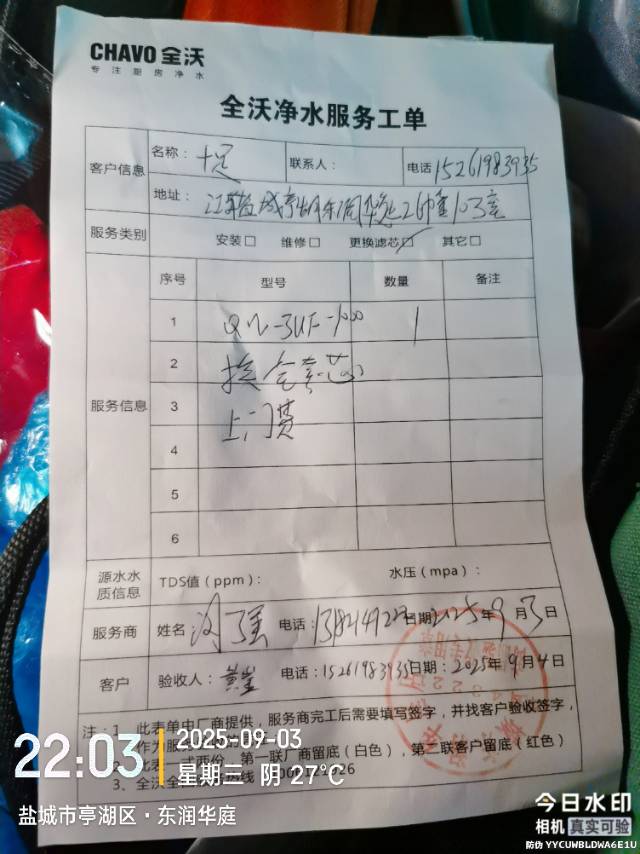 CHAVO 全沃
专注厨房净水
全沃净水服务工单
客户信息
名称： 十足 联系人： 电话 15261983935
地址： 江苏盐城亭湖东润华庭26幢103室
服务类别 安装□ 维修□ 更换滤芯☑ 其它□
服务信息
序号 型号 数量 备注
1 QN-3UF-1000 1
2 换全套芯
3 上门费
4
5
6
源水水质信息 TDS值（ppm）： 水压（mpa）：
服务商 姓名： 电话： 日期：2025年9月3日
客户 验收人： 电话：15261983935 日期：2025年9月4日
注：1、此表单由厂商提供，服务商完工后需要填写签字，并找客户验收签字，
作为服务
2、此表一式两份，第一联厂商留底（白色），第二联客户留底（红色）
3、全沃全
22:03
2025-09-03
星期三 阴 27℃
盐城市亭湖区·东润华庭
今日水印
相机 真实可验
防伪 YYCUWBLDWA6E1U